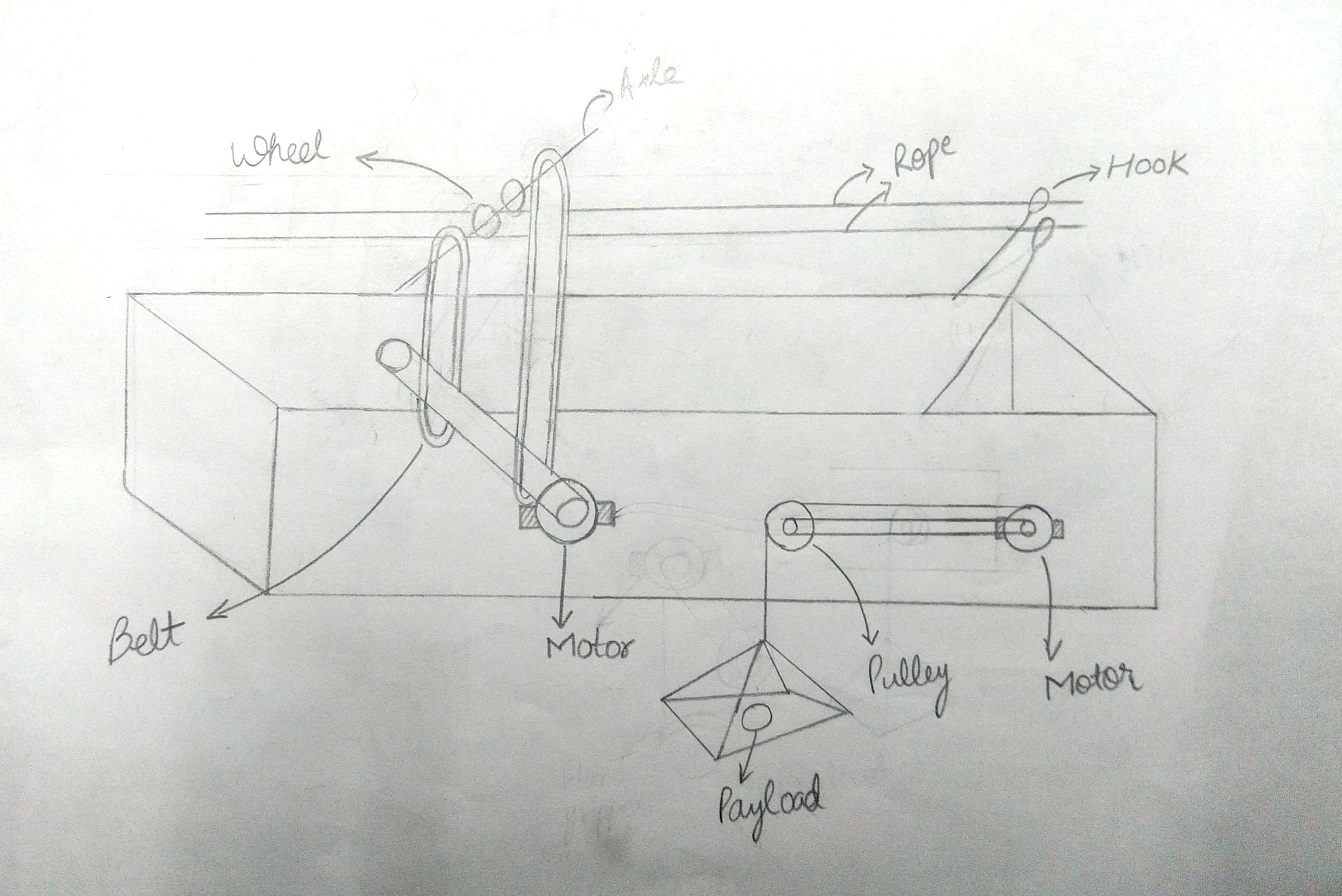 Axle
Wheel
Rope
Hook
Belt
Motor
Pulley
Motor
Payload